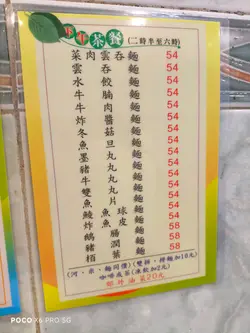 下午茶餐 (二時半至六時)
菜肉雲吞麵 54
雲吞麵 54
水餃麵 54
牛腩麵 54
牛肉麵 54
炸醬麵 54
冬菇麵 54
魚旦麵 54
墨丸麵 54
豬丸麵 54
牛丸麵 54
雙丸麵 54
魚片麵 54
鯪魚球麵 54
炸魚皮麵 54
鵝腸麵 58
豬潤麵 58
栢葉麵 58
(河、米、麵同價) (雙拼、撈麵加10元)
咖啡或茶 (凍飲加2元)
郊外油菜20元
POCO X6 PRO 5G